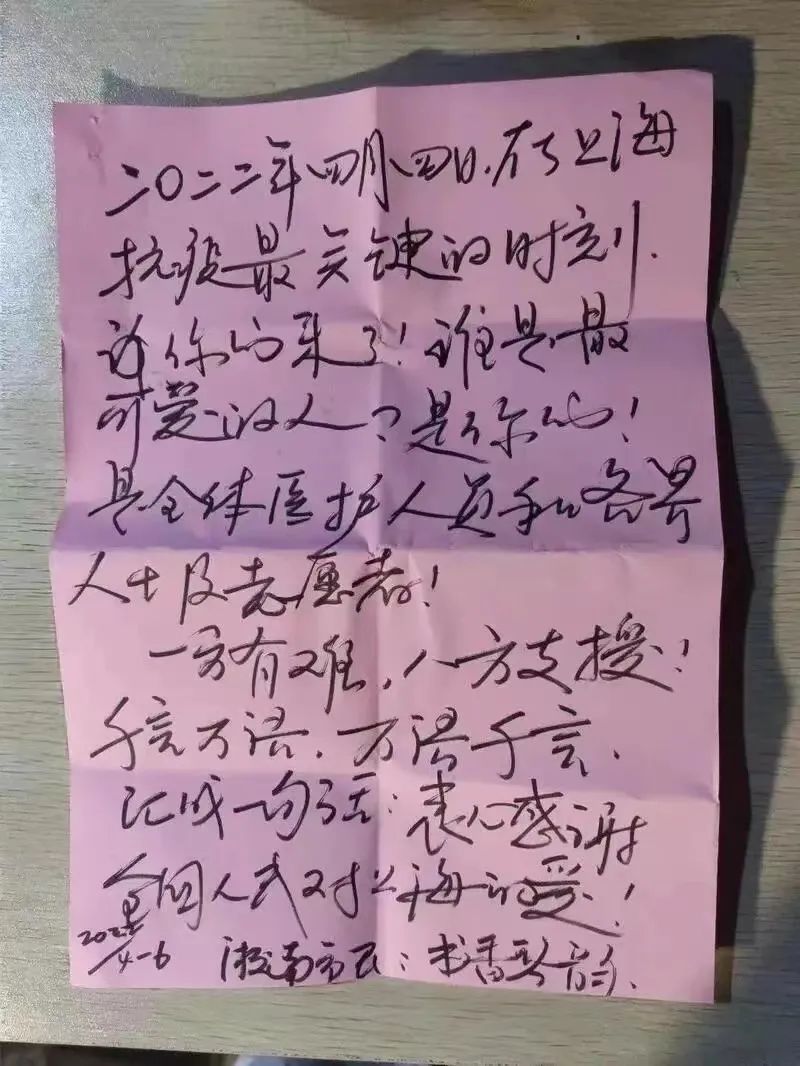 二〇二二年四月四日.在上海
抗疫最关键的时刻.
你们来了！谁是最
可爱的人？是你们！
是全体医护人员和各界
人士及志愿者！
一方有难，八方支援！
千言万语、万语千言、
汇成一句话：衷心感谢
全国人民对上海的爱！
2022
4-6 淞南市民：书香